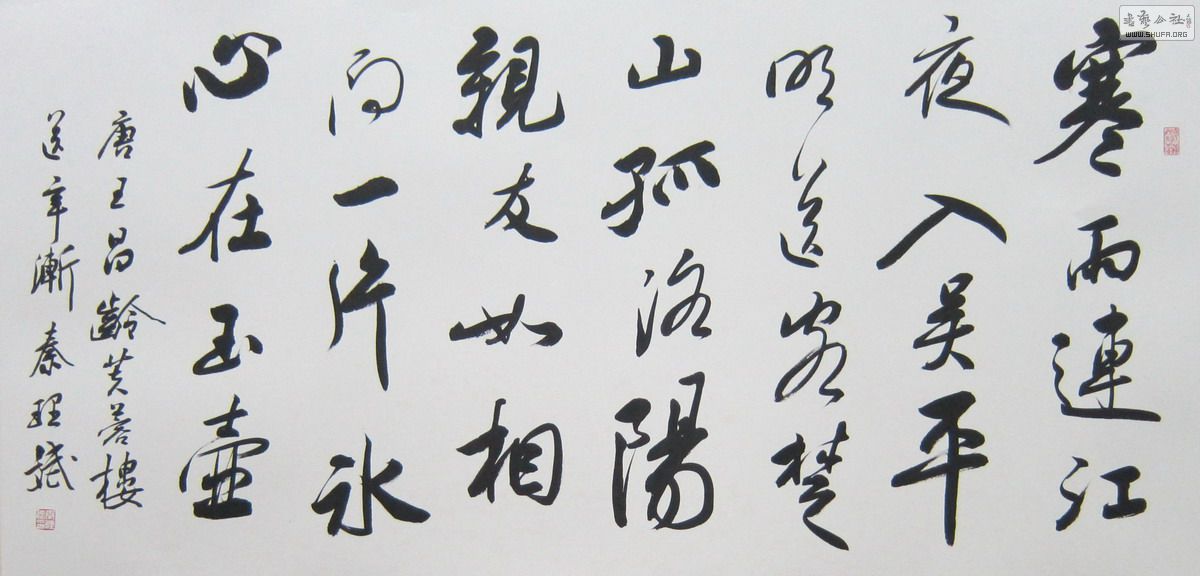 寒雨連江
夜入吴平
明送客楚
山孤洛陽
親友如相
问一片冰
心在玉壶
唐王昌齡芙蓉樓
送辛漸 秦理斌
書藝公社
WWW.SHUFA.ORG